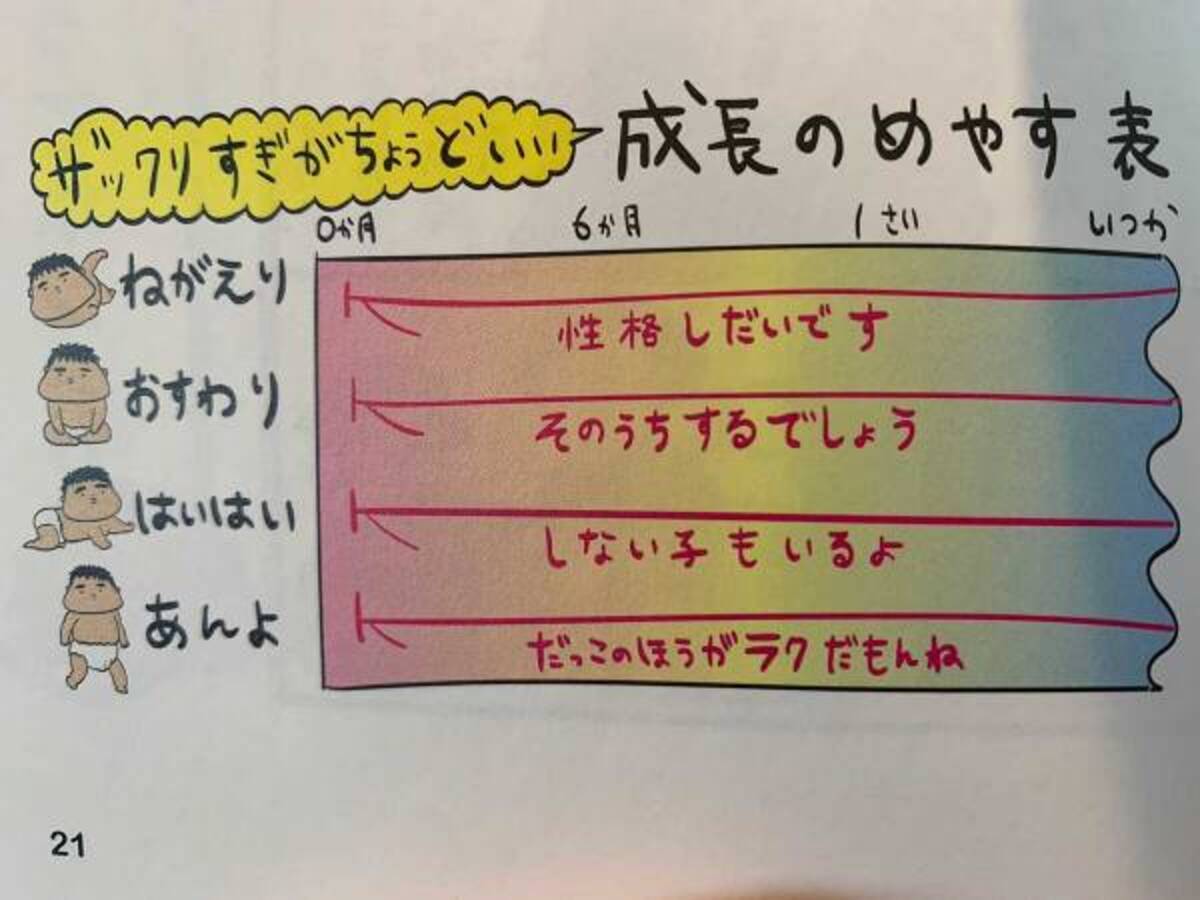 ザックリすぎがちょうどいい
成長のめやす表
0か月 6か月 1さい いつか
ねがえり
性格しだいです
おすわり
そのうちするでしょう
はいはい
しない子もいるよ
あんよ
だっこのほうがラクだもんね
21